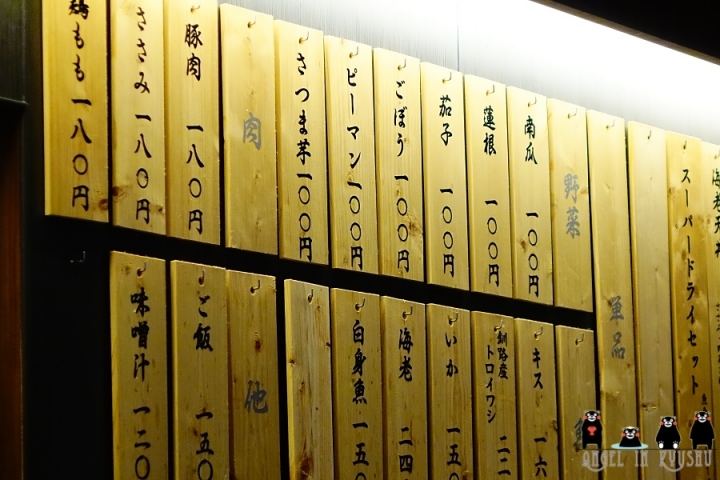 海老天丼
スーパードライセット
単品
野菜
南瓜 一〇〇円
蓮根 一〇〇円
茄子 一〇〇円
ごぼう 一〇〇円
ピーマン 一〇〇円
さつま芋 一〇〇円
肉
豚肉 一八〇円
ささみ 一八〇円
鶏もも 一八〇円
キス 一六
釧路産トロイワシ 二二
いか 一五〇
海老 二四
白身魚 一五〇
他
ご飯 一五〇
味噌汁 一二〇
ANGEL IN KYUSHU